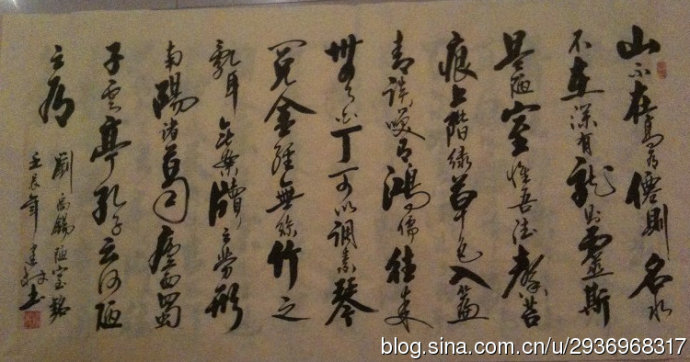 山不在高有僊則名水
不在深有龍則靈斯
是陋室惟吾德馨苔
痕上階綠草色入簾
青談笑有鴻儒往來
無白丁可以調素琴
閱金經無絲竹之
亂耳無案牘之勞形
南陽諸葛廬西蜀
子雲亭孔子云何陋
之有
劉禹錫陋室銘
壬辰年建書
blog.sina.com.cn/u/2936968317